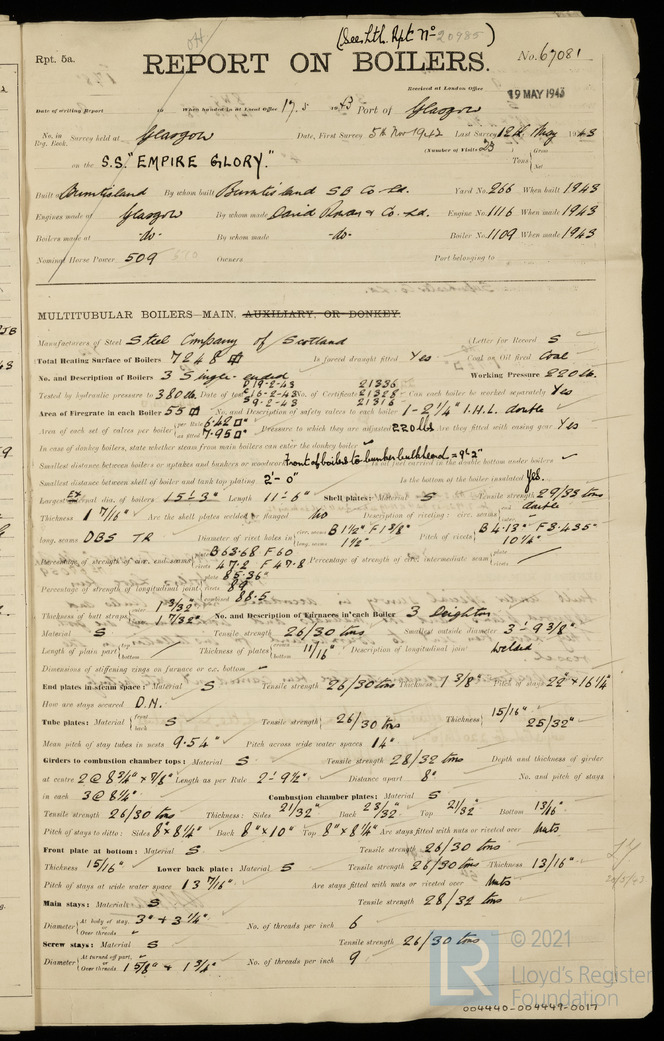 (See Lth. Rpt. No 20985)
Rpt. 5a.
REPORT ON BOILERS.
No. 67081
Received at London Office
19 MAY 1943
Date of writing Report 19 When handed in at Local Office 17.5 1943 Port of Glasgow
No. in Reg. Book. Survey held at Glasgow Date, First Survey 5th Nov 1942 Last Survey 12th May 1943
(Number of Visits 23) Gross
on the S.S. "EMPIRE GLORY." Tons Net
Built at Burntisland By whom built Burntisland S B Co Ld. Yard No. 266 When built 1943
Engines made at Glasgow By whom made David Rowan & Co. Ld. Engine No. 1116 When made 1943
Boilers made at -do- By whom made -do- Boiler No. 1109 When made 1943
Nominal Horse Power 509 Owners Port belonging to
MULTITUBULAR BOILERS—MAIN, AUXILIARY, OR DONKEY.
Manufacturers of Steel Steel Company of Scotland (Letter for Record S
Total Heating Surface of Boilers 7248 Is forced draught fitted Yes Coal or Oil fired Coal
No. and Description of Boilers 3 Single-ended Working Pressure 220 lb.
Tested by hydraulic pressure to 380 lb. Date of test 19-2-43 16-2-43 9-2-43 No. of Certificate 21336 21328 21316 Can each boiler be worked separately Yes
Area of Firegrate in each Boiler 55 No. and Description of safety valves to each boiler 1-2¼" I.H.L. double
Area of each set of valves per boiler per Rule 6.42 as fitted 7.95 Pressure to which they are adjusted 220 lbs Are they fitted with easing gear Yes
In case of donkey boilers, state whether steam from main boilers can enter the donkey boiler
Smallest distance between boilers or uptakes and bunkers or woodwork Front of boilers to bunker bulkhead = 9'-2" Is oil fuel carried in the double bottom under boilers
Smallest distance between shell of boiler and tank top plating 2'-0" Is the bottom of the boiler insulated Yes.
Largest Ex ternal dia. of boilers 15'-3" Length 11'-6" Shell plates: Material S Tensile strength 29/33 tons
Thickness 1 7/16" Are the shell plates welded or flanged No Description of riveting: circ. seams double
long. seams DBS TR Diameter of rivet holes in circ. seams B 1½" F 1 3/8" long. seams 1½" Pitch of rivets B 4.13" F 3.435" 10¼"
Percentage of strength of circ. end seams plate B 63.68 F 60 rivets 47.2 F 47.8 Percentage of strength of circ. intermediate seam
Percentage of strength of longitudinal joint plate 85.36 rivets 89 combined 88.5
Thickness of butt straps 1 3/32" 1 7/32" No. and Description of Furnaces in each Boiler 3 Deighton
Material S Tensile strength 26/30 tons Smallest outside diameter 3'-9 3/8"
Length of plain part top bottom Thickness of plates crown bottom 11/16" Description of longitudinal joint Welded
Dimensions of stiffening rings on furnace or c.c. bottom
End plates in steam space: Material S Tensile strength 26/30 tons Thickness 1 3/8" Pitch of stays 22" × 16¼"
How are stays secured D.N.
Tube plates: Material front back S Tensile strength 26/30 tons Thickness 15/16" 25/32"
Mean pitch of stay tubes in nests 9.54" Pitch across wide water spaces 14"
Girders to combustion chamber tops: Material S Tensile strength 28/32 tons Depth and thickness of girder
at centre 2 @ 8¾" × 7/8" Length as per Rule 2'-9½" Distance apart 8" No. and pitch of stays
in each 3 @ 8¼" Combustion chamber plates: Material S
Tensile strength 26/30 tons Thickness: Sides 21/32" Back 23/32" Top 21/32" Bottom 13/16"
Pitch of stays to ditto: Sides 8" × 8¼" Back 8" × 10" Top 8" × 8¼" Are stays fitted with nuts or riveted over Nuts
Front plate at bottom: Material S Tensile strength 26/30 tons
Thickness 15/16" Lower back plate: Material S Tensile strength 26/30 tons Thickness 13/16"
Pitch of stays at wide water space 13 7/16" Are stays fitted with nuts or riveted over Nuts
Main stays: Material S Tensile strength 28/32 tons
Diameter At body of stay, or Over threads 3" + 3¼" No. of threads per inch 6
Screw stays: Material S Tensile strength 26/30 tons
Diameter At turned off part, or Over threads 1 5/8" + 1¾" No. of threads per inch 9
LR © 2021
Lloyd's Register
Foundation
004440-004449-0017